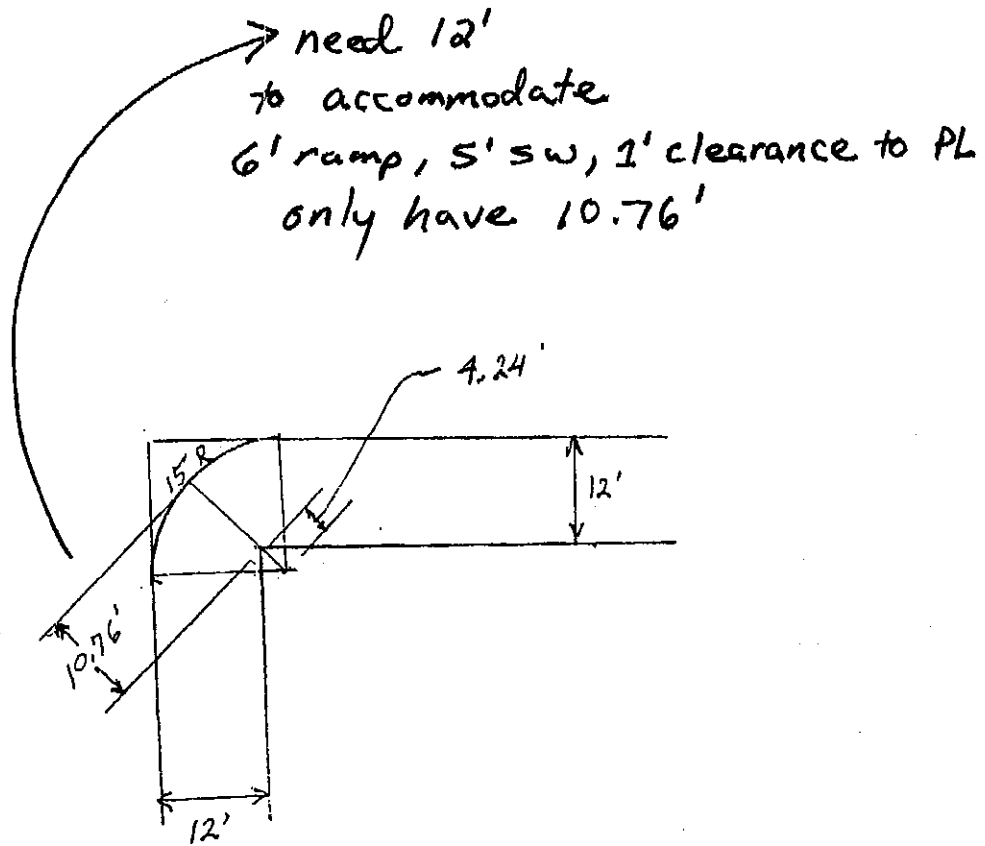 need 12'
to accommodate
6' ramp, 5' sw, 1' clearance to PL
only have 10.76'
4.24'
15 R
12'
10.76'
12'